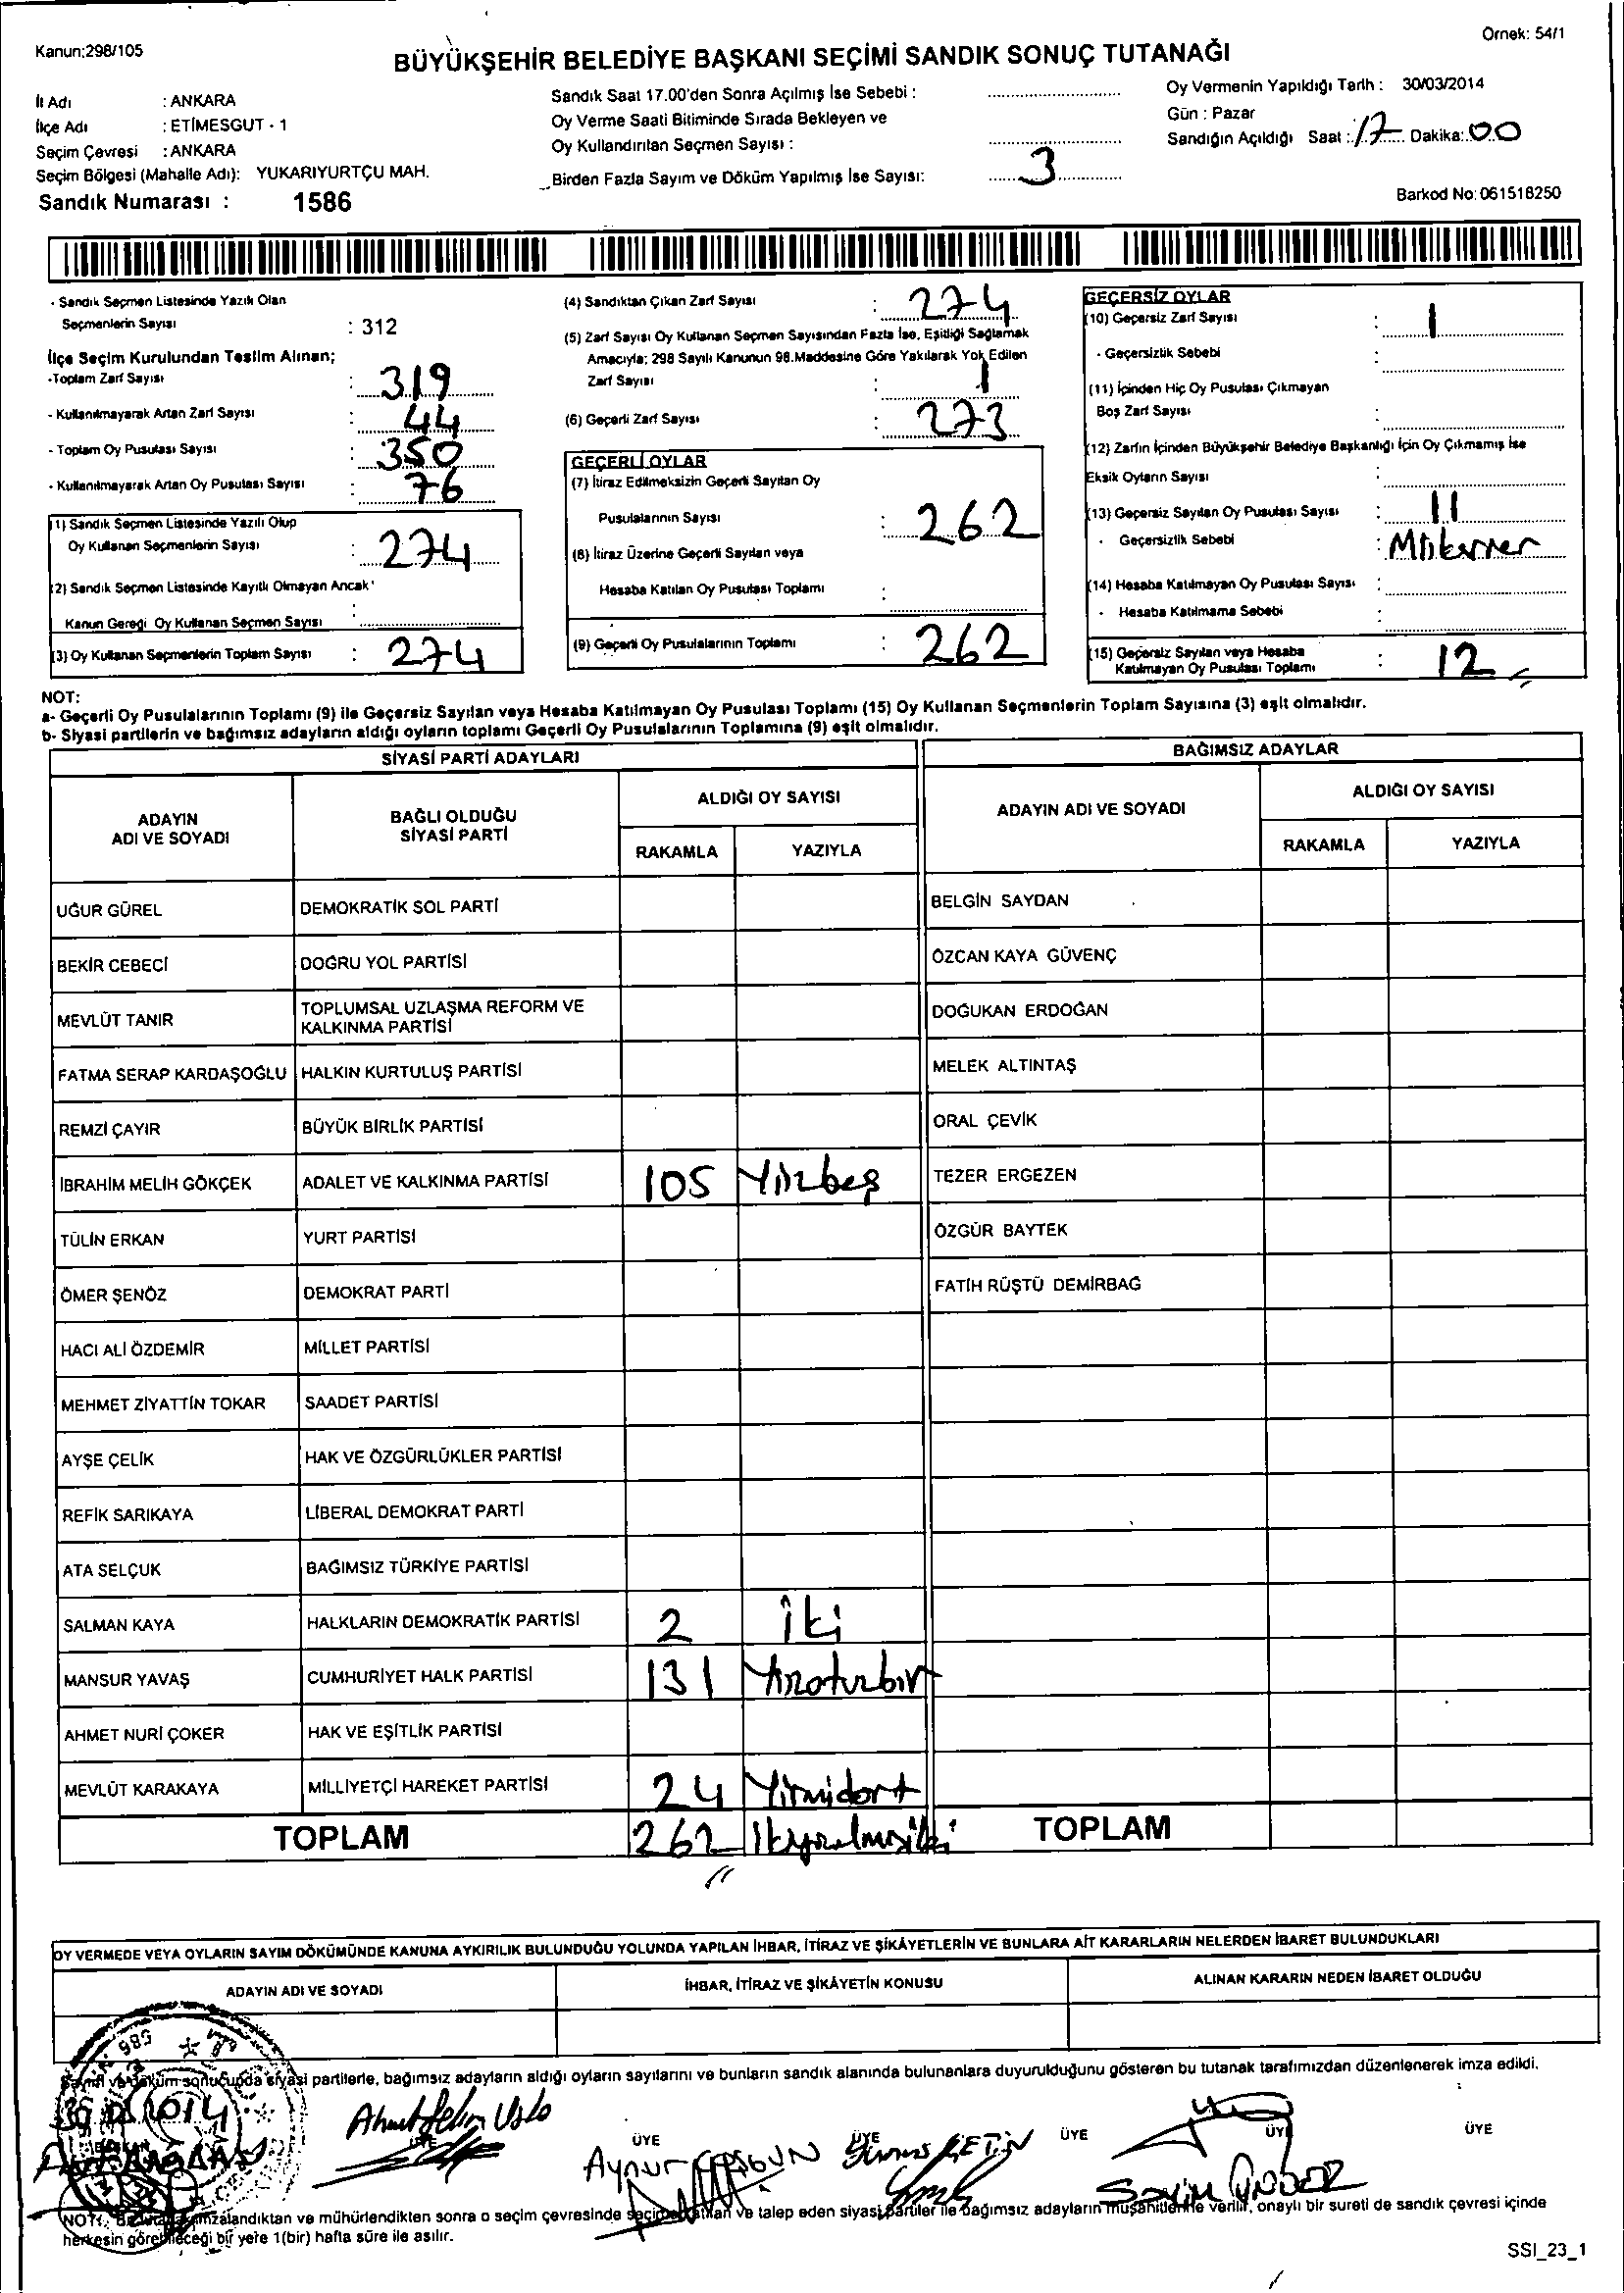 Kanun:298/105
Örnek: 54/1
BÜYÜKŞEHİR BELEDİYE BAŞKANI SEÇİMİ SANDIK SONUÇ TUTANAĞI
İl Adı : ANKARA
İlçe Adı : ETİMESGUT - 1
Seçim Çevresi : ANKARA
Seçim Bölgesi (Mahalle Adı): YUKARIYURTÇU MAH.
Sandık Numarası : 1586
Sandık Saat 17.00'den Sonra Açılmış İse Sebebi :
Oy Verme Saati Bitiminde Sırada Bekleyen ve
Oy Kullandırılan Seçmen Sayısı :
Birden Fazla Sayım ve Döküm Yapılmış İse Sayısı: 3
Oy Vermenin Yapıldığı Tarih : 30/03/2014
Gün : Pazar
Sandığın Açıldığı Saat : 17 Dakika: 00
Barkod No: 061518250
- Sandık Seçmen Listesinde Yazılı Olan
Seçmenlerin Sayısı : 312
İlçe Seçim Kurulundan Teslim Alınan;
-Toplam Zarf Sayısı : 319
- Kullanılmayarak Artan Zarf Sayısı : 44
- Toplam Oy Pusulası Sayısı : 350
- Kullanılmayarak Artan Oy Pusulası Sayısı : 76
(1) Sandık Seçmen Listesinde Yazılı Olup
Oy Kullanan Seçmenlerin Sayısı : 274
(2) Sandık Seçmen Listesinde Kayıtlı Olmayan Ancak
Kanun Gereği Oy Kullanan Seçmen Sayısı :
(3) Oy Kullanan Seçmenlerin Toplam Sayısı : 274
(4) Sandıktan Çıkan Zarf Sayısı : 274
(5) Zarf Sayısı Oy Kullanan Seçmen Sayısından Fazla İse, Eşitliği Sağlamak
Amacıyla; 298 Sayılı Kanunun 98.Maddesine Göre Yakılarak Yok Edilen
Zarf Sayısı : 1
(6) Geçerli Zarf Sayısı : 273
GEÇERLİ OYLAR
(7) İtiraz Edilmeksizin Geçerli Sayılan Oy
Pusulalarının Sayısı : 262
(8) İtiraz Üzerine Geçerli Sayılan veya
Hesaba Katılan Oy Pusulası Toplamı :
(9) Geçerli Oy Pusulalarının Toplamı : 262
GEÇERSİZ OYLAR
(10) Geçersiz Zarf Sayısı : 1
- Geçersizlik Sebebi :
(11) İçinden Hiç Oy Pusulası Çıkmayan
Boş Zarf Sayısı :
(12) Zarfın İçinden Büyükşehir Belediye Başkanlığı İçin Oy Çıkmamış İse
Eksik Oyların Sayısı :
(13) Geçersiz Sayılan Oy Pusulası Sayısı : 11
- Geçersizlik Sebebi :
(14) Hesaba Katılmayan Oy Pusulası Sayısı :
- Hesaba Katılmama Sebebi :
(15) Geçersiz Sayılan veya Hesaba
Katılmayan Oy Pusulası Toplamı : 12
NOT:
a- Geçerli Oy Pusulalarının Toplamı (9) ile Geçersiz Sayılan veya Hesaba Katılmayan Oy Pusulası Toplamı (15) Oy Kullanan Seçmenlerin Toplam Sayısına (3) eşit olmalıdır.
b- Siyasi partilerin ve bağımsız adayların aldığı oyların toplamı Geçerli Oy Pusulalarının Toplamına (9) eşit olmalıdır.
SİYASİ PARTİ ADAYLARI
ADAYIN ADI VE SOYADI
BAĞLI OLDUĞU SİYASİ PARTİ
ALDIĞI OY SAYISI
RAKAMLA YAZIYLA
UĞUR GÜREL DEMOKRATİK SOL PARTİ
BEKİR CEBECİ DOĞRU YOL PARTİSİ
MEVLÜT TANIR TOPLUMSAL UZLAŞMA REFORM VE KALKINMA PARTİSİ
FATMA SERAP KARDAŞOĞLU HALKIN KURTULUŞ PARTİSİ
REMZİ ÇAYIR BÜYÜK BİRLİK PARTİSİ
İBRAHİM MELİH GÖKÇEK ADALET VE KALKINMA PARTİSİ 105 Yüzbeş
TÜLİN ERKAN YURT PARTİSİ
ÖMER ŞENÖZ DEMOKRAT PARTİ
HACI ALİ ÖZDEMİR MİLLET PARTİSİ
MEHMET ZİYATTİN TOKAR SAADET PARTİSİ
AYŞE ÇELİK HAK VE ÖZGÜRLÜKLER PARTİSİ
REFİK SARIKAYA LİBERAL DEMOKRAT PARTİ
ATA SELÇUK BAĞIMSIZ TÜRKİYE PARTİSİ
SALMAN KAYA HALKLARIN DEMOKRATİK PARTİSİ 2 iki
MANSUR YAVAŞ CUMHURİYET HALK PARTİSİ 131 Yüzotuzbir
AHMET NURİ ÇOKER HAK VE EŞİTLİK PARTİSİ
MEVLÜT KARAKAYA MİLLİYETÇİ HAREKET PARTİSİ 24 Yirmidört
TOPLAM 262 İkiyüzaltmışiki
BAĞIMSIZ ADAYLAR
ADAYIN ADI VE SOYADI
ALDIĞI OY SAYISI
RAKAMLA YAZIYLA
BELGİN SAYDAN
ÖZCAN KAYA GÜVENÇ
DOĞUKAN ERDOĞAN
MELEK ALTINTAŞ
ORAL ÇEVİK
TEZER ERGEZEN
ÖZGÜR BAYTEK
FATİH RÜŞTÜ DEMİRBAĞ
TOPLAM
OY VERMEDE VEYA OYLARIN SAYIM DÖKÜMÜNDE KANUNA AYKIRILIK BULUNDUĞU YOLUNDA YAPILAN İHBAR, İTİRAZ VE ŞİKÂYETLERİN VE BUNLARA AİT KARARLARIN NELERDEN İBARET BULUNDUKLARI
ADAYIN ADI VE SOYADI
İHBAR, İTİRAZ VE ŞİKÂYETİN KONUSU
ALINAN KARARIN NEDEN İBARET OLDUĞU
Sayım ve döküm sonucunda siyasi partilerle, bağımsız adayların aldığı oyların sayılarını ve bunların sandık alanında bulunanlara duyurulduğunu gösteren bu tutanak tarafımızdan düzenlenerek imza edildi.
Ahmet Selim Uslu
ÜYE ÜYE ÜYE ÜYE ÜYE ÜYE
Aynur COŞGUN
Yunus ÇETİN
Sevim ÖNDER
NOT: imzalandıktan ve mühürlendikten sonra o seçim çevresinde seçime katılan ve talep eden siyasi partiler ile bağımsız adayların müşahitlerine verilir, onaylı bir sureti de sandık çevresi içinde
herkesin görebileceği bir yere 1(bir) hafta süre ile asılır.
SSI_23_1